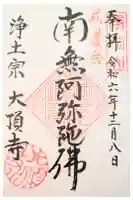 奉拝 令和六年十二月八日
南無阿弥陀佛
浄土宗 大頂寺